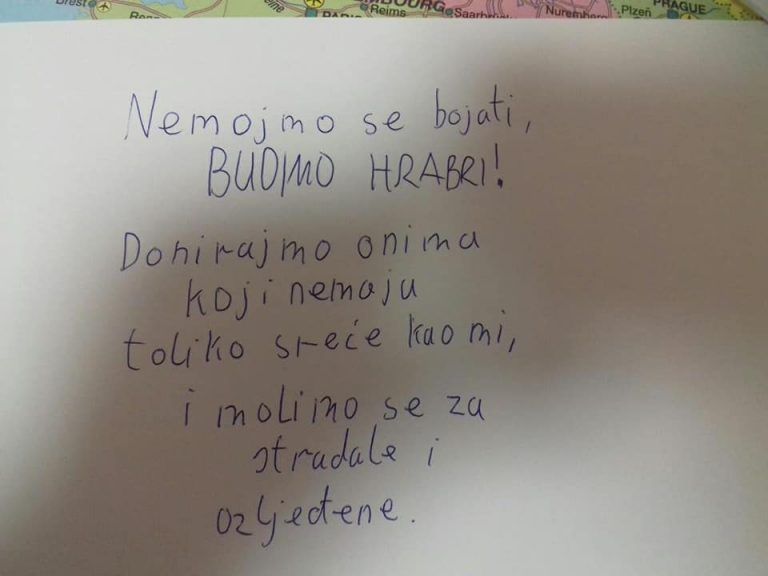 Brest
REIMS
Saarbrück
Nuremberg
Plzeň
PRAGUE
Nemojmo se bojati,
BUDIMO HRABRI!
Donirajmo onima
koji nemaju
toliko sreće kao mi,
i molimo se za
stradale i
ozljeđene.